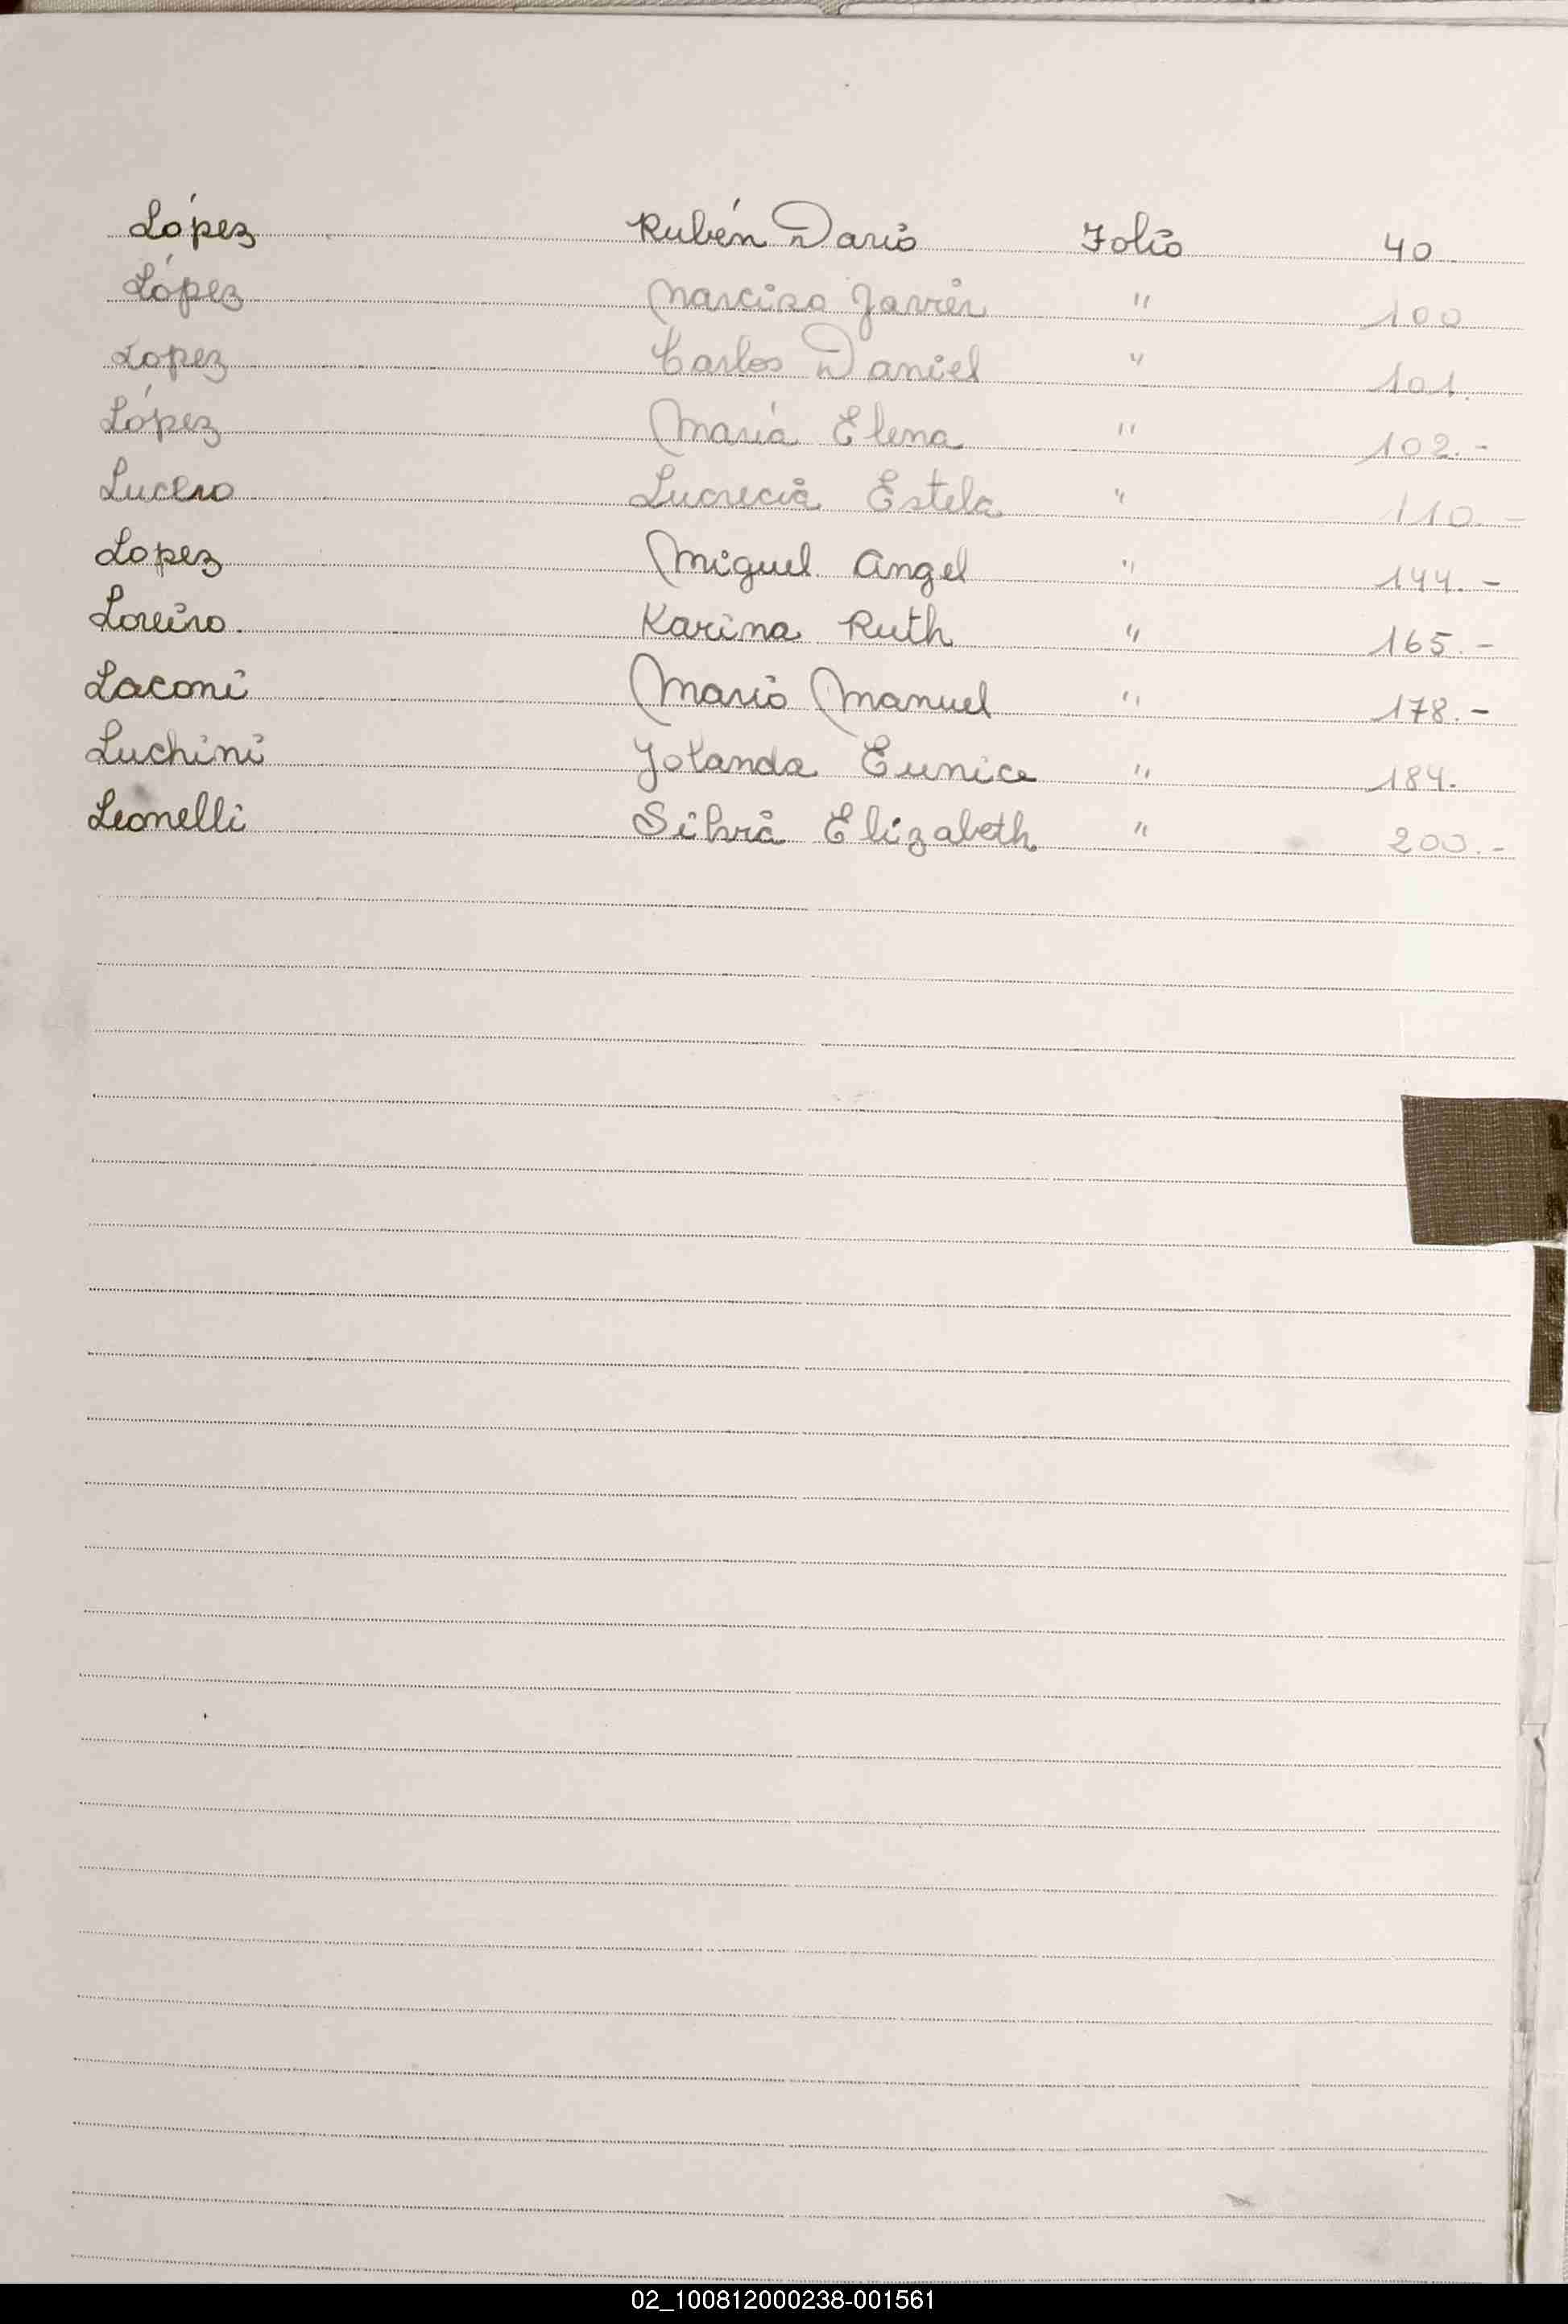 López Rubén Dario Folio 40
López Narciso Javier " 100
Lopez Carlos Daniel " 101.
López María Elena " 102.-
Lucero Lucrecia Estela " 110.-
Lopez Miguel Angel " 144.-
Loreiro. Karina Ruth " 165.-
Laconi Mario Manuel " 178.-
Luchini Yolanda Eunice " 184.
Leonelli Silvia Elizabeth " 200.-
02_100812000238-001561